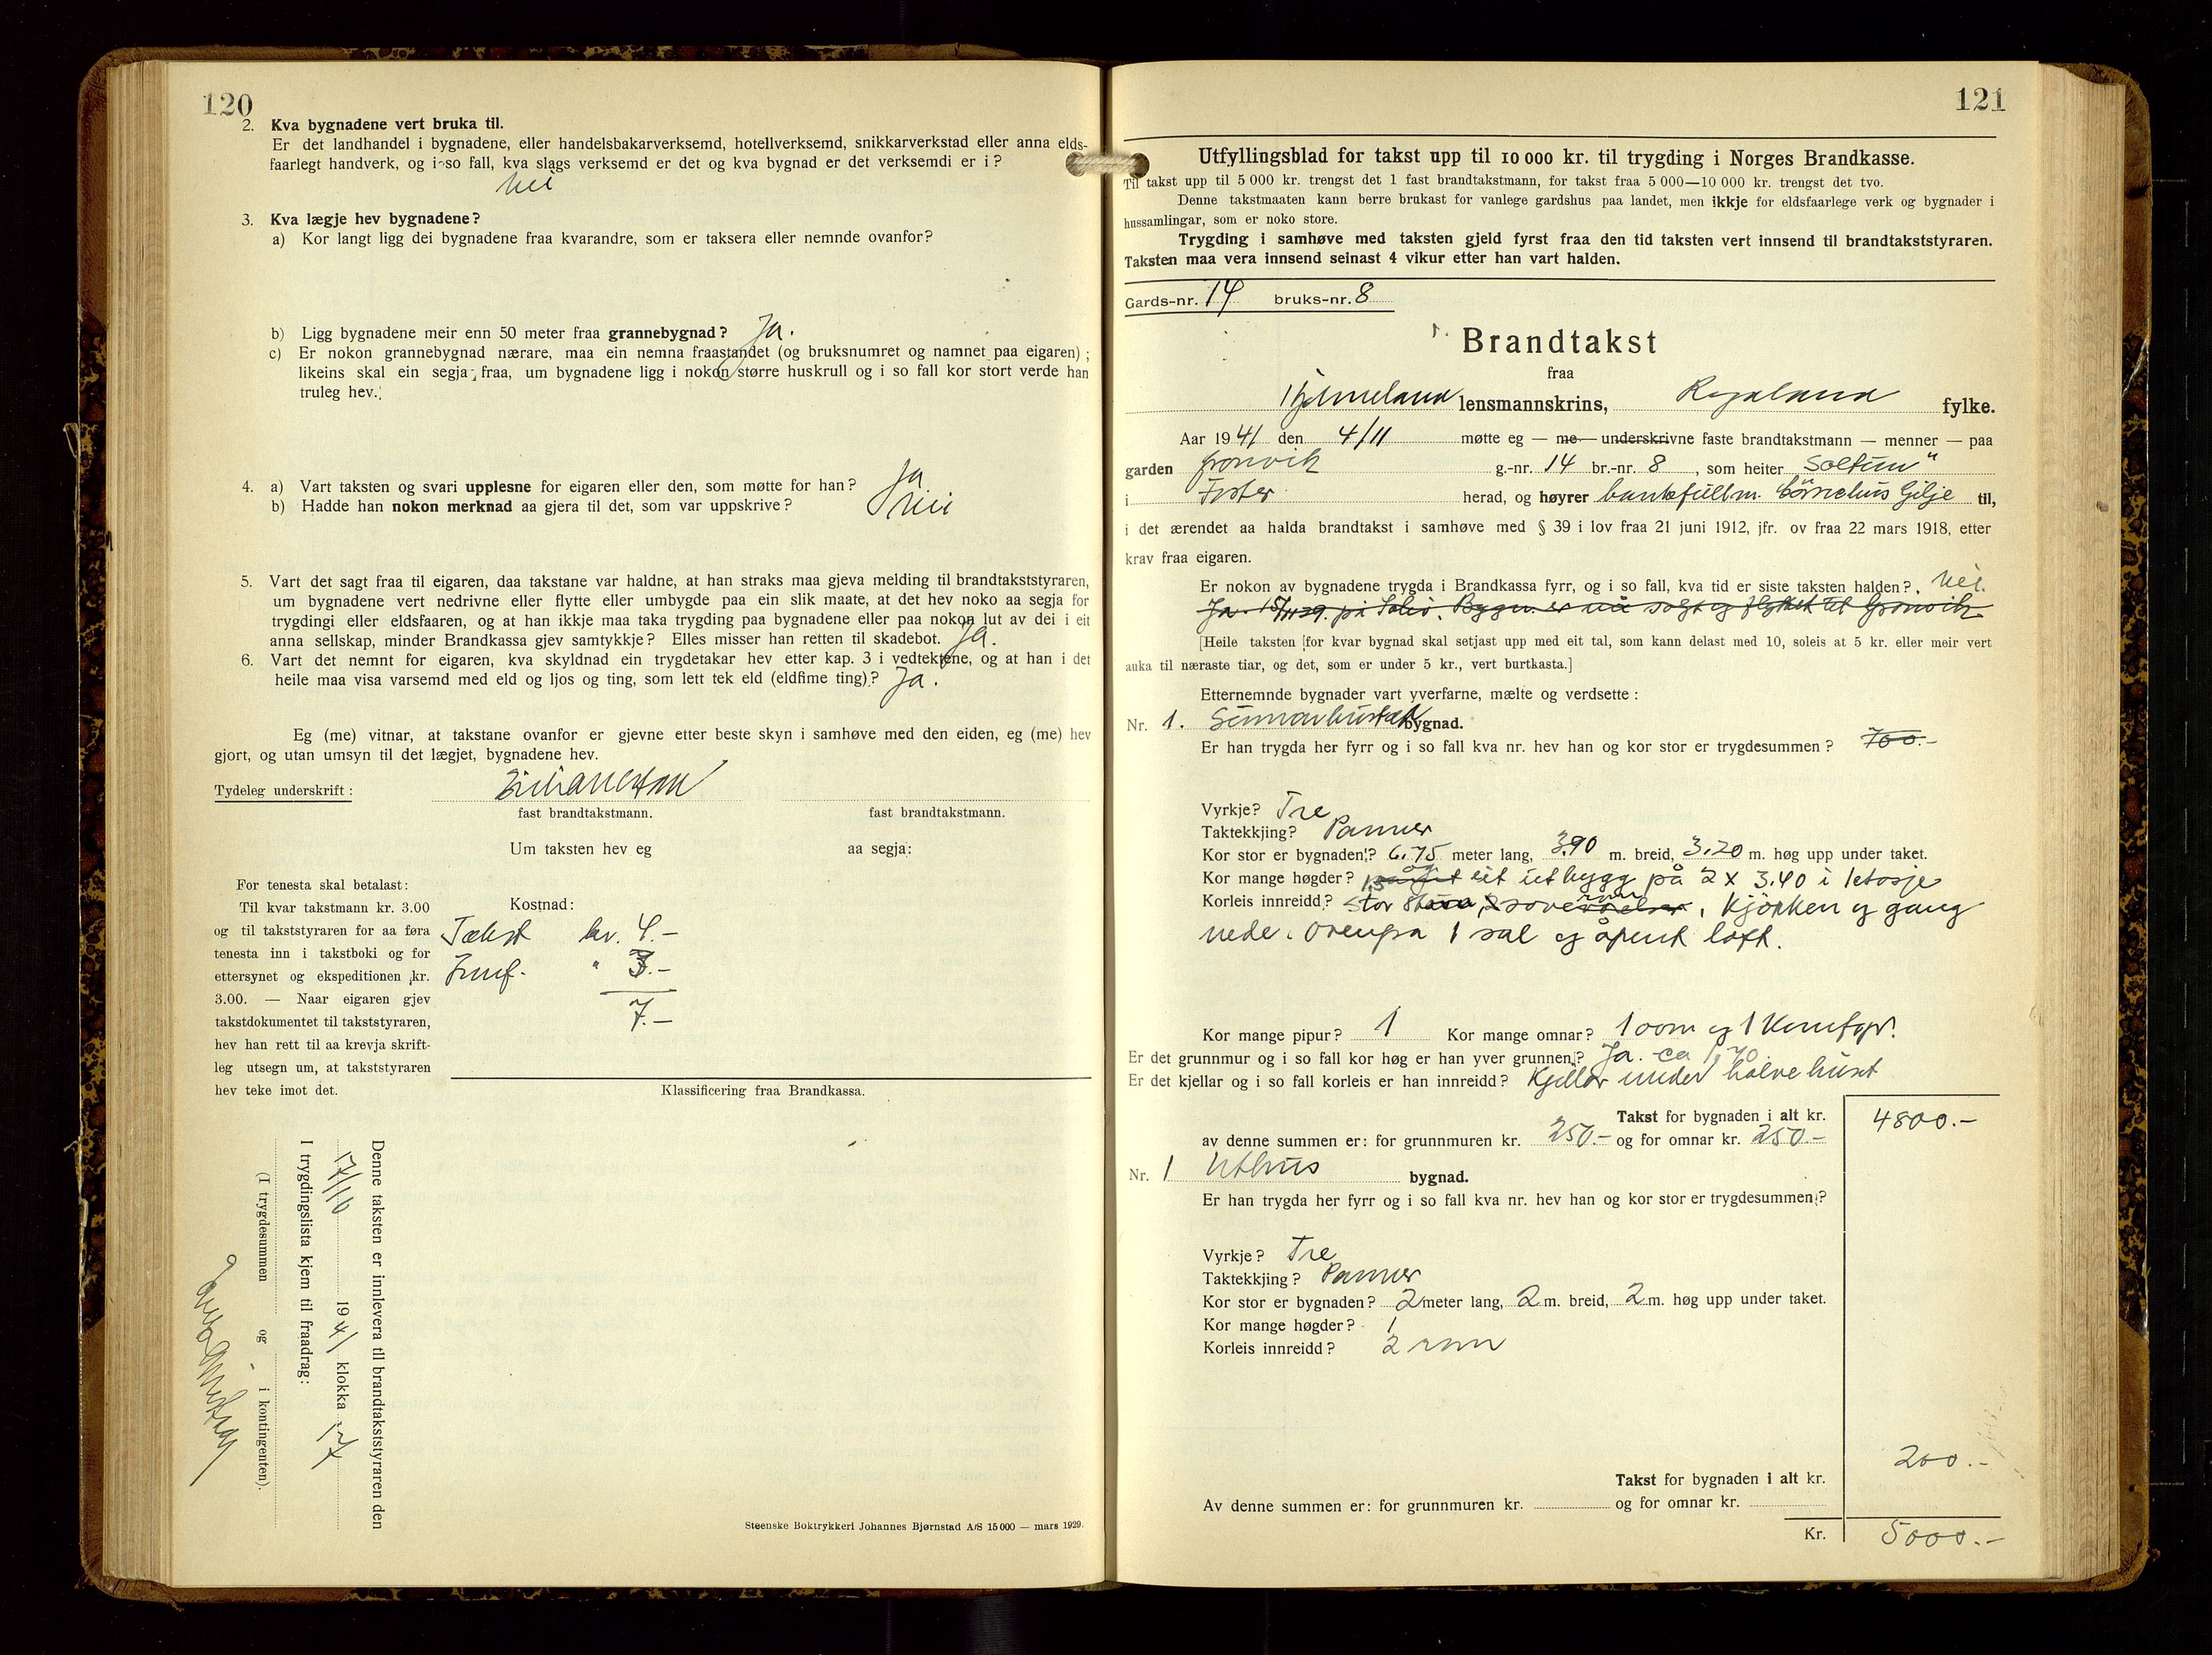 120
2. Kva bygnadene vert bruka til.
Er det landhandel i bygnadene, eller handelsbakarverksemd, hotellverksemd, snikkarverkstad eller anna elds-
faarlegt handverk, og i so fall, kva slags verksemd er det og kva bygnad er det verksemdi er i?
Nei
3. Kva lægje hev bygnadene?
a) Kor langt ligg dei bygnadene fraa kvarandre, som er taksera eller nemnde ovanfor?
b) Ligg bygnadene meir enn 50 meter fraa grannebygnad? Ja.
c) Er nokon grannebygnad nærare, maa ein nemna fraastandet (og bruksnumret og namnet paa eigaren);
likeins skal ein segja fraa, um bygnadene ligg i nokon større huskrull og i so fall kor stort verde han
truleg hev.
4. a) Vart taksten og svari upplesne for eigaren eller den, som møtte for han? Ja
b) Hadde han nokon merknad aa gjera til det, som var uppskrive? Nei
5. Vart det sagt fraa til eigaren, daa takstane var haldne, at han straks maa gjeva melding til brandtakststyraren,
um bygnadene vert nedrivne eller flytte eller umbygde paa ein slik maate, at det hev noko aa segja for
trygdingi eller eldsfaaren, og at han ikkje maa taka trygding paa bygnadene eller paa nokon lut av dei i eit
anna sellskap, minder Brandkassa gjev samtykkje? Elles misser han retten til skadebot. Ja.
6. Vart det nemnt for eigaren, kva skyldnad ein trygdetakar hev etter kap. 3 i vedtektene, og at han i det
heile maa visa varsemd med eld og ljos og ting, som lett tek eld (eldfime ting)? Ja.
Eg (me) vitnar, at takstane ovanfor er gjevne etter beste skyn i samhøve med den eiden, eg (me) hev
gjort, og utan umsyn til det lægjet, bygnadene hev.
Tydeleg underskrift:
fast brandtakstmann. fast brandtakstmann.
Um taksten hev eg aa segja:
For tenesta skal betalast:
Til kvar takstmann kr. 3.00
og til takststyraren for aa føra
tenesta inn i takstboki og for
ettersynet og ekspeditionen kr.
3.00. — Naar eigaren gjev
takstdokumentet til takststyraren,
hev han rett til aa krevja skrift-
leg utsegn um, at takststyraren
hev teke imot det.
Kostnad:
Takst kr. 4.-
Innf. " 3.-
7.-
Klassificering fraa Brandkassa.
Denne taksten er innlevera til brandtakststyraren den
17/11 1941 klokka 17
I trygdingslista kjem til fraadrag:
(I trygdesummen og i kontingenten).
Steenske Boktrykkeri Johannes Bjørnstad A/S 15000 — mars 1929.
121
Utfyllingsblad for takst upp til 10 000 kr. til trygding i Norges Brandkasse.
Til takst upp til 5 000 kr. trengst det 1 fast brandtakstmann, for takst fraa 5 000—10 000 kr. trengst det tvo.
Denne takstmaaten kann berre brukast for vanlege gardshus paa landet, men ikkje for eldsfaarlege verk og bygnader i
hussamlingar, som er noko store.
Trygding i samhøve med taksten gjeld fyrst fraa den tid taksten vert innsend til brandtakststyraren.
Taksten maa vera innsend seinast 4 vikur etter han vart halden.
Gards-nr. 14 bruks-nr. 8
Brandtakst
fraa
Hjelmeland lensmannskrins, Rogaland fylke.
Aar 1941 den 4/11 møtte eg — me — underskrivne faste brandtakstmann — menner — paa
garden Grønvik g.-nr. 14 br.-nr. 8, som heiter "Soltun"
i Fister herad, og høyrer bankfullm. Cörnelius Gilje til,
i det ærendet aa halda brandtakst i samhøve med § 39 i lov fraa 21 juni 1912, jfr. ov fraa 22 mars 1918, etter
krav fraa eigaren.
Er nokon av bygnadene trygda i Brandkassa fyrr, og i so fall, kva tid er siste taksten halden? Nei.
Ja. 15/11 29. på Bygn. er nu solgt og flyttet til Grønvik
[Heile taksten for kvar bygnad skal setjast upp med eit tal, som kann delast med 10, soleis at 5 kr. eller meir vert
auka til næraste tiar, og det, som er under 5 kr., vert burtkasta.]
Etternemnde bygnader vart yverfarne, mælte og verdsette:
Nr. 1. bygnad.
Er han trygda her fyrr og i so fall kva nr. hev han og kor stor er trygdesummen? 700.-
Vyrkje? Tre
Taktekkjing? Panner
Kor stor er bygnaden? 6.75 meter lang, 3.90 m. breid, 3.20 m. høg upp under taket.
Kor mange høgder? 1.5 og eit utbygg på 2 x 3.40 i 1 etasje
Korleis innreidd? Stor stova, 2 rom, kjökken og gang
nede. Ovenpa 1 sal og åpent loft.
Kor mange pipur? 1 Kor mange omnar? 1 oom og 1 Komfyr.
Er det grunnmur og i so fall kor høg er han yver grunnen? Ja. ca 1,70.
Er det kjellar og i so fall korleis er han innreidd? Kjellar under halve huset
Takst for bygnaden i alt kr. 4800.-
av denne summen er: for grunnmuren kr. 250.- og for omnar kr. 250.-
Nr. 1 Uthus bygnad.
Er han trygda her fyrr og i so fall kva nr. hev han og kor stor er trygdesummen?
Vyrkje? Tre
Taktekkjing? Panner
Kor stor er bygnaden? 2 meter lang, 2 m. breid, 2 m. høg upp under taket.
Kor mange høgder? 1
Korleis innreidd? 2 rom
200.-
Takst for bygnaden i alt kr.
Av denne summen er: for grunnmuren kr. og for omnar kr.
Kr. 5000.-